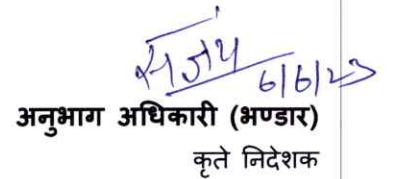 संजय
6/6/23
अनुभाग अधिकारी (भण्डार)
कृते निदेशक